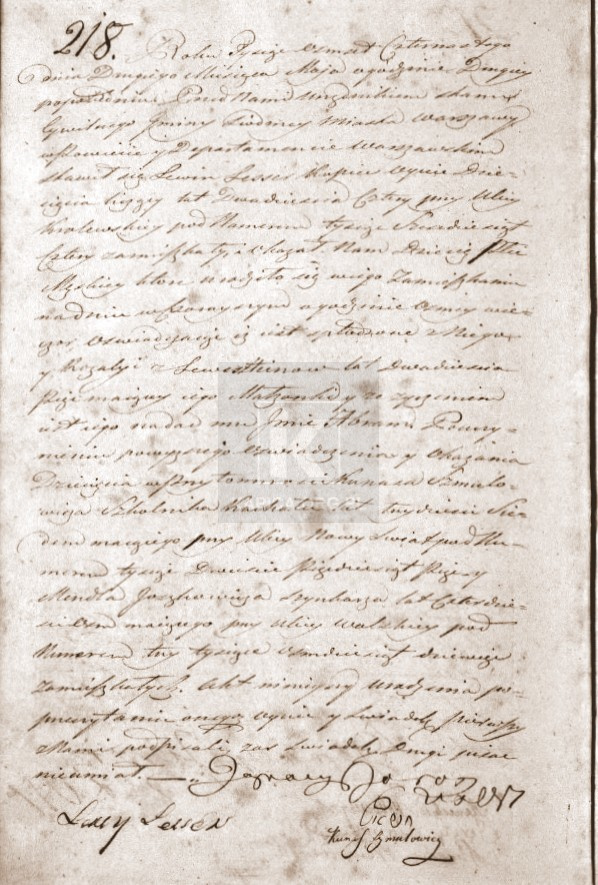 218. Roku Tysiąc Osmset Czternastego
dnia Drugiego Miesiąca Maja o godzinie Drugiey
popołudniu Przed Nami Urzędnikiem Stanu
Cywilnego Gminy Siodmey Miasta Warszawy
w Powiecie y Departamencie Warszawskim
stawił się Lewin Lesser Kupiec Oyciec Dzie-
cięcia liczący lat Dwadzieścia Cztery przy Ulicy
Krolewskiey pod Numerem tysiąc Sześćdziesiąt
Cztery zamieszkały, i okazał Nam Dziecię Płci
Męskiey ktore urodziło się w iego Zamieszkaniu
na dniu wczorayszym o godzinie Osmey wie-
czor Oswiadczaiąc iż iest spłodzone z Niego
y Rozalyi z Lewensteinow lat Dwadzieścia
Pięć maiącey iego Małżonki y że życzeniem
iest iego nadać mu Imie Abram Po uczy-
nieniu powyższego Oświadczenia y Okazania
Dziecięcia w przytomności Kunasa Szmulo-
wicza Szkolnika Kahału lat trzydzieści Sie-
dem maiącego przy Ulicy Nowy Świat pod Nu-
merem tysiąc Dwieście Pięćdziesiąt Pięć y
Mendla Joszkowicza Szynkarza lat Czterdzie-
ści Osm maiącego przy Ulicy Walskiey pod
Numerem trzy tysiące Osmdziesiąt dziewięć
zamieszkałych. Akt ninieyszy Urodzenia po
przeczytaniu onego Oyciec y Świadek Pierwszy
z Nami podpisali, zas Świadek Drugi pisać
nieumiał. Ignacy
Lewy Lesser
Kunas Szmulowicz